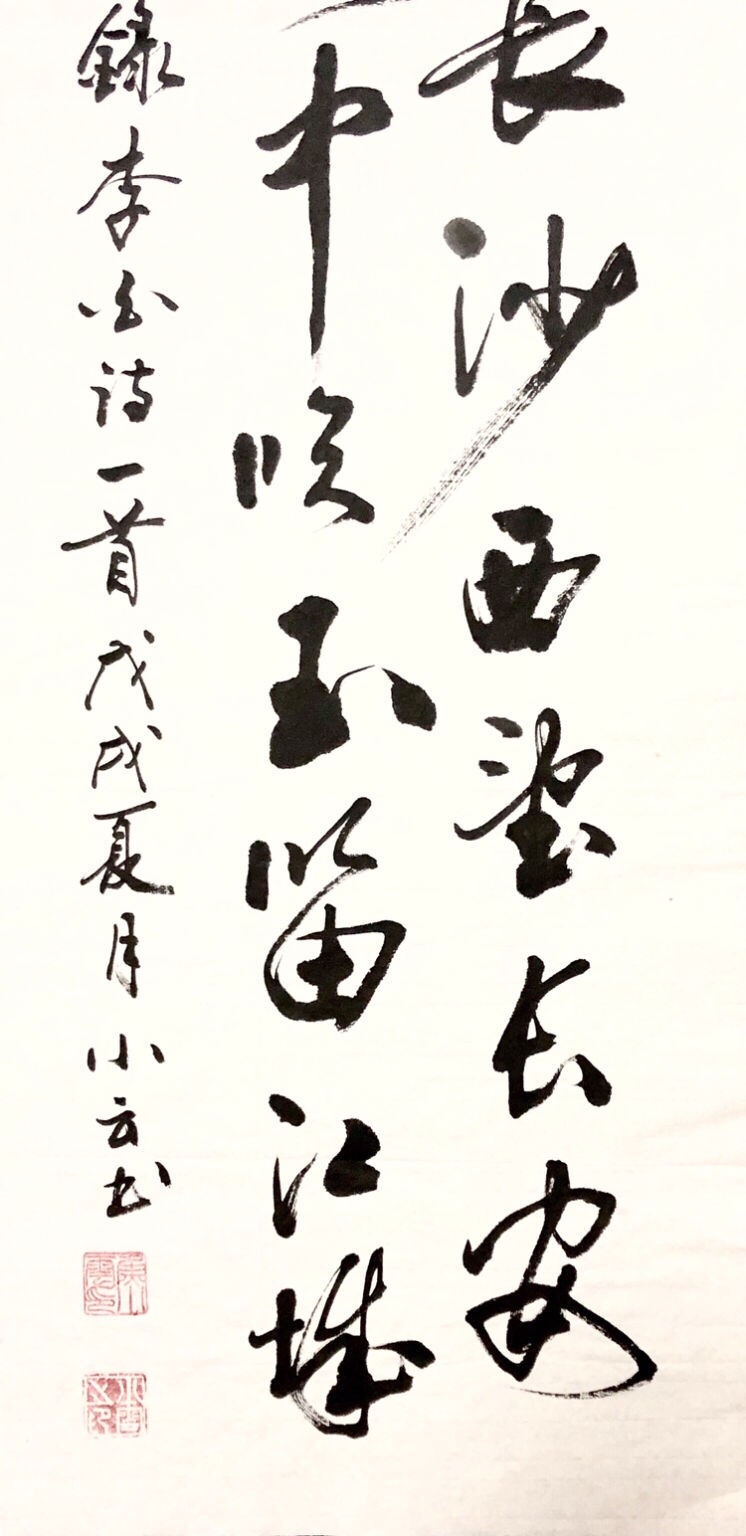 長沙西望长安
中吹玉笛江城
錄李白诗一首戊戌夏月小云书